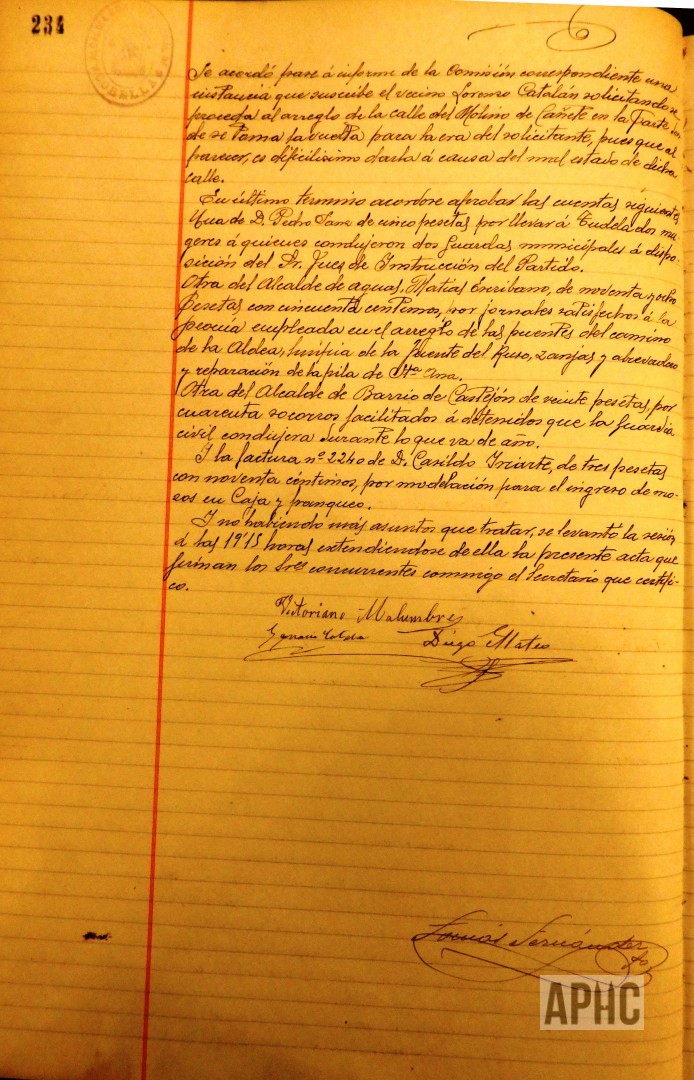 234
Se acordó pase á informe de la Comisión correspondiente una
instancia que suscribe el vecino Lorenzo Catalán solicitando se
proceda al arreglo de la calle del Molino de Cañete en la parte
de se toma la vuelta para la era del solicitante, pues que al
parecer, es dificilísimo darla á causa del mal estado de dicha
calle.
En último termino acordose aprobar las cuentas siguientes
Una de D. Pedro Sanz de cinco pesetas por llevar á Tudela dos mu-
geres á quienes condujeron dos Guardas municipales á dispo-
sición del Sr. Juez de Instrucción del Partido.
Otra del Alcalde de aguas, Matías Escribano, de noventa y ocho
pesetas con cincuenta centimos, por jornales satisfechos á la
peonía empleada en el arreglo de los puentes del camino
de la Aldea, limpia de la fuente del Ruso, zanjas y abrevadero
y reparación de la pila de Sta. Ana.
Otra del Alcalde de Barrio de Castejón de veinte pesetas, por
cuarenta socorros facilitados á detenidos que la Guardia
civil condujera durante lo que va de año.
I la factura nº 2240 de D. Casildo Iriarte, de tres pesetas
con noventa céntimos, por modelación para el ingreso de mo-
zos en Caja y franqueo.
I no habiendo más asuntos que tratar, se levantó la sesión
á las 19'15 horas extendiéndose de ella la presente acta que
firman los Sres concurrentes conmigo el Secretario que certifi-
co.
Victoriano Malumbres
Ignacio
Diego Mateo
Tomás Fernández
APHC